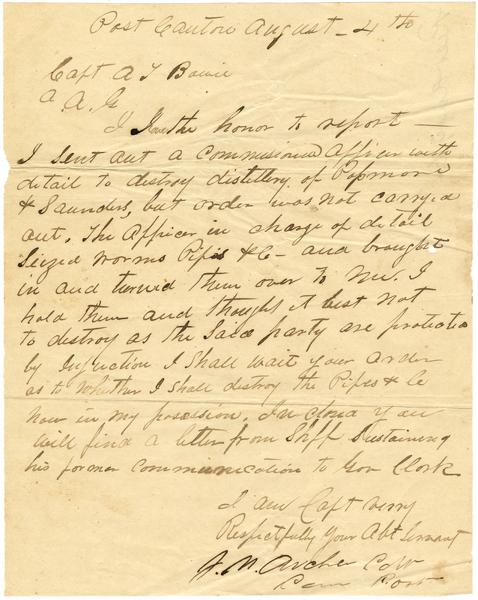 Post Canton August - 4th
Capt A T Bowie
A. A. G
I Have the honor to report —
I sent out a Commissioned Officer with
detail to destroy distillery of
& Saunders, but order was not carryed
out. The Officer in charge of detail
Seized worms Pipes & C - and brought
in and turned them over to me. I
hold them and thought it best not
to destroy as the said party are protected
by Injunction I shall wait your order
as to whether I shall destroy the Pipes & C
now in my possession. Inclosed you
will find a letter from Shff Sustaining
his former communication to Gov Clark
I am Capt verry
Respectfully Your Obt Servant
J. M. Archer Col
Com Post